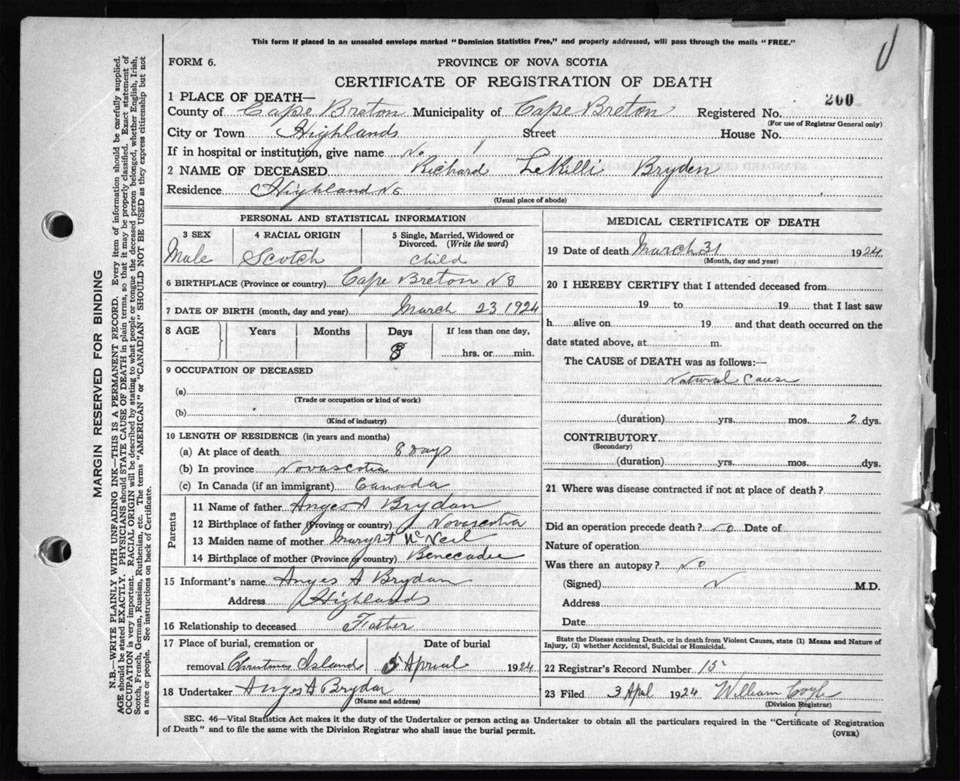 This form if placed in an unsealed envelope marked "Dominion Statistics Free," and properly addressed, will pass through the mails "FREE."
FORM 6.
PROVINCE OF NOVA SCOTIA
CERTIFICATE OF REGISTRATION OF DEATH
200
1 PLACE OF DEATH—
County of Cape Breton Municipality of Cape Breton Registered No.
(For use of Registrar General only)
City or Town Highlands Street House No.
If in hospital or institution, give name No
2 NAME OF DECEASED Richard Bryden
Residence Highland NS
(Usual place of abode)
PERSONAL AND STATISTICAL INFORMATION
3 SEX 4 RACIAL ORIGIN 5 Single, Married, Widowed or Divorced. (Write the word)
Male Scotch child
6 BIRTHPLACE (Province or country) Cape Breton NS
7 DATE OF BIRTH (month, day and year) March 23 1924
8 AGE Years Months Days If less than one day,
8 hrs. or min.
9 OCCUPATION OF DECEASED
(a)
(Trade or occupation or kind of work)
(b)
(Kind of industry)
10 LENGTH OF RESIDENCE (in years and months)
(a) At place of death 8 days
(b) In province Novascotia
(c) In Canada (if an immigrant) Canada
Parents
11 Name of father Anges A Brydan
12 Birthplace of father (Province or country) Novascotia
13 Maiden name of mother Margret McNeil
14 Birthplace of mother (Province or country) Benecadie
15 Informant's name Anges A Brydan
Address Highlands
16 Relationship to deceased Father
17 Place of burial, cremation or Date of burial
removal Christmas Island 5 Aprial 1924
18 Undertaker Anges A Brydan
(Name and address)
MEDICAL CERTIFICATE OF DEATH
19 Date of death March 31 1924
(Month, day and year)
20 I HEREBY CERTIFY that I attended deceased from
19 to 19 that I last saw
h alive on 19 and that death occurred on the
date stated above, at m.
The CAUSE of DEATH was as follows:—
Natural Cause
(duration) yrs. mos. 2 dys.
CONTRIBUTORY
(Secondary)
(duration) yrs. mos. dys.
21 Where was disease contracted if not at place of death?
Did an operation precede death? no Date of
Nature of operation
Was there an autopsy? No
(Signed) M.D.
Address
Date
State the Disease causing Death, or in death from Violent Causes, state (1) Means and Nature of
Injury, (2) whether Accidental, Suicidal or Homicidal.
22 Registrar's Record Number 15
23 Filed 3 Apl 1924 William Coyle
(Division Registrar)
SEC. 46—Vital Statistics Act makes it the duty of the Undertaker or person acting as Undertaker to obtain all the particulars required in the "Certificate of Registration
of Death" and to file the same with the Division Registrar who shall issue the burial permit.
(OVER)
MARGIN RESERVED FOR BINDING
N.B.—WRITE PLAINLY WITH UNFADING INK—THIS IS A PERMANENT RECORD. Every item of information should be carefully supplied.
AGE should be stated EXACTLY. PHYSICIANS should STATE CAUSE OF DEATH in plain terms, so that it may be properly classified. Exact statement of
OCCUPATION is very important. RACIAL ORIGIN will be described by stating to what people or tongue the deceased person belonged, whether English, Irish,
Scotch, French, German, Russian, Ruthenian, etc. The terms "AMERICAN" or "CANADIAN" SHOULD NOT BE USED as they express citizenship but not
a race or people. See instructions on back of Certificate.